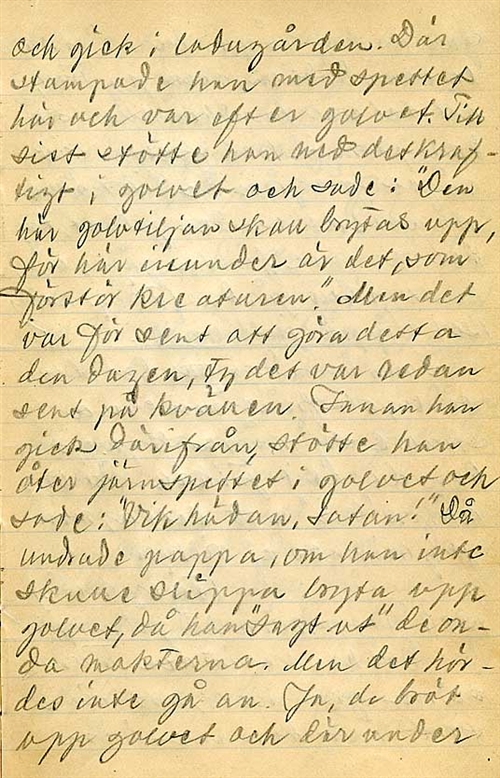 och gick i ladugården. Där
stampade han med spettet
här och var efter golvet. Till
sist stötte han ned det kraf-
tigt i golvet och sade: "Den
här golvtiljan skall brytas upp,
för här inunder är det, som
förstör kreaturen." Men det
var för sent att göra detta
den dagen, ty det var redan
sent på kvällen. Innan han
gick därifrån, stötte han
åter järnspettet i golvet och
sade: "Vik hädan, Satan!" Då
undrade pappa, om han inte
skulle slippa bryta upp
golvet, då han "sagt ut" de on-
da makterna. Men det hör-
des inte gå an. Ja, de bröt
upp golvet och där under